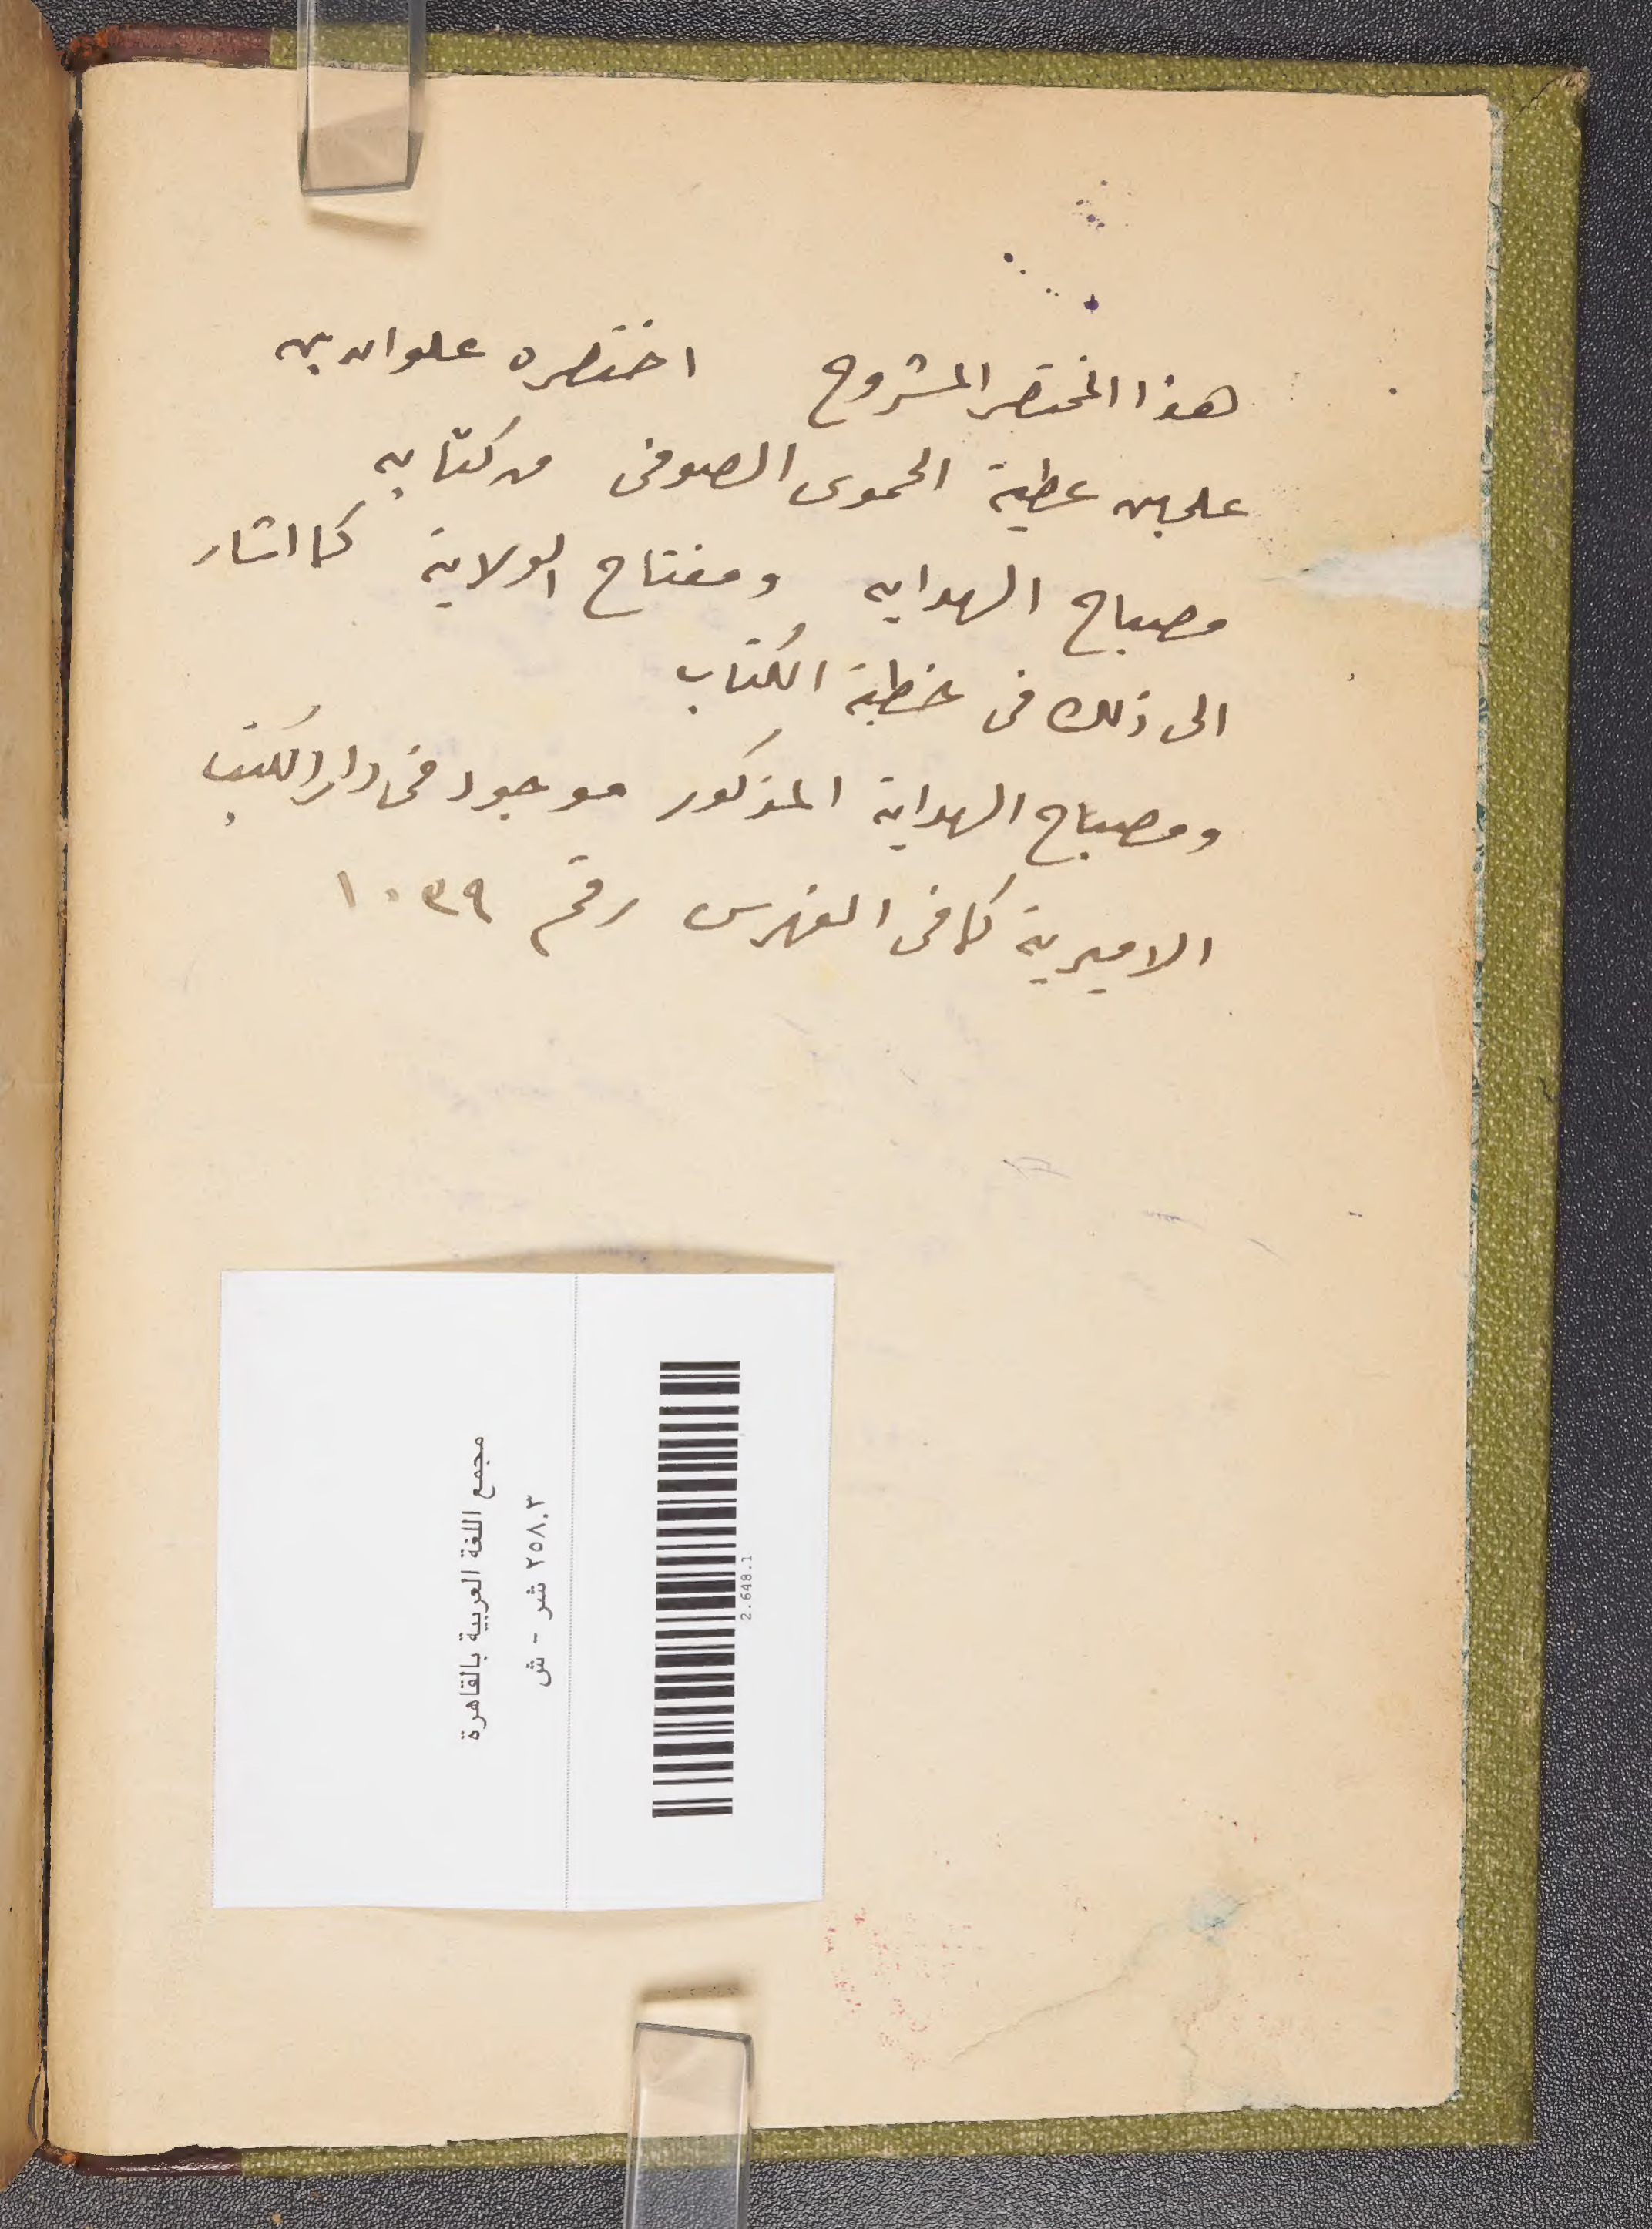 هذا المختصر المشروح اختصره علوان بن
علي بن عطية الحموى الصوفى من كتابه
مصباح الهدايه ومفتاح الولاية كما اشار
الى ذلك فى خطبة الكتاب
ومصباح الهداية المذكور موجود فى دار الكتب
الاميرية كما فى الفهرس رقم ١٠٣٩
مجمع اللغة العربية بالقاهرة
٢٥٨.٣ شر - ش
2.648.1